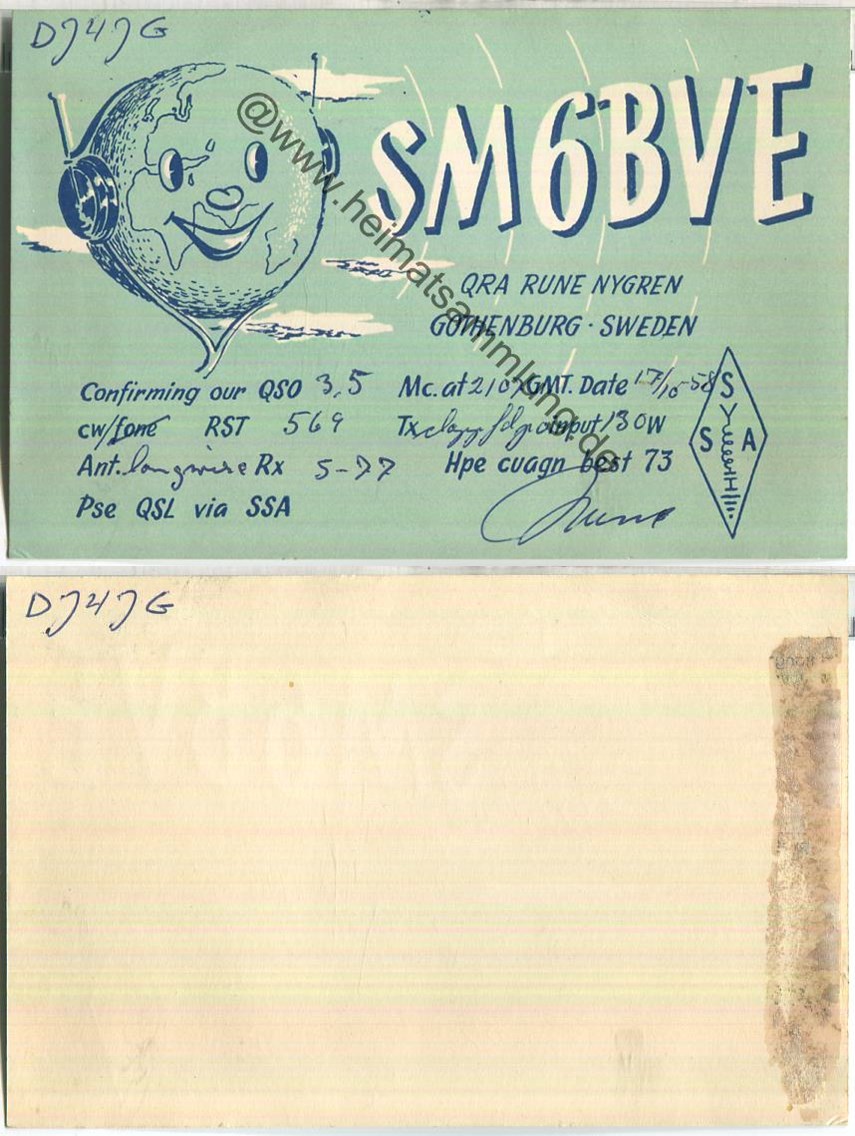 DJ4JG
SM6BVE
@www.heimatsammlung.de
QRA RUNE NYGREN
GOTHENBURG · SWEDEN
Confirming our QSO 3,5 Mc. at 2107 GMT. Date 17/10-58
cw/fone RST 569 Tx input 130W
Ant. longwire Rx S-77 Hpe cuagn best 73
Pse QSL via SSA
Rune
S
S A
DJ4JG